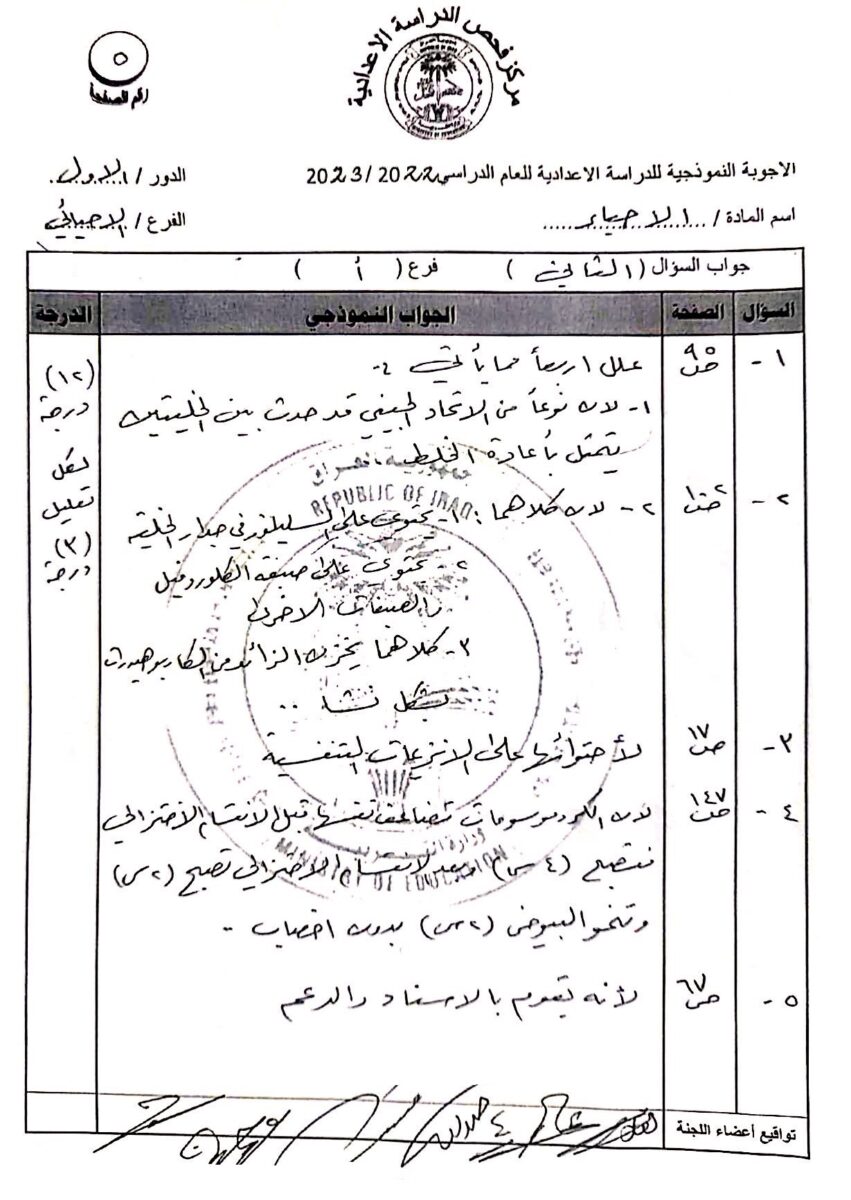 مركز فحص الدراسة الاعدادية
٥
رقم الصفحة
الاجوبة النموذجية للدراسة الاعدادية للعام الدراسي 2022 / 2023
الدور / الاول
اسم المادة / الاحياء
الفرع / الاحيائي
جواب السؤال ( الثاني ) فرع ( أ )
السؤال الصفحة الجواب النموذجي الدرجة
١ - ص ٩٥ علل اربعاً مما يأتي :-
(١٢) درجة
١- لان نوعاً من الاتحاد الجيني قد حدث بين الخليتين
يتمثل بأعادة الخلط
لكل تعليل (٣) درجة
٢ - ص ١٠٢ ٢- لان كلاهما : ١- يحتوي على السليلوز في جدار الخلية
٢- يحتوي على صبغة الكلوروفيل
والصبغات الاخرى
٣- كلاهما يخزن الزائد من الكاربوهيدرات
بشكل نشا ..
٣ - ص ١٧ لأحتوائها على الانزيمات التنفسية
٤ - ص ١٤٧ لان الكروموسومات تضاعف نفسها قبل الانقسام الاختزالي
فتصبح (٤ س) وبعد الانقسام الاختزالي تصبح (٢ س)
وتنمو البيوض (٢ س) بدون اخصاب ..
٥ - ص ٦٧ لأنه يقوم بالاسناد والدعم
جمهورية العراق
REPUBLIC OF IRAQ
وزارة التربية
MINISTRY OF EDUCATION
تواقيع أعضاء اللجنة